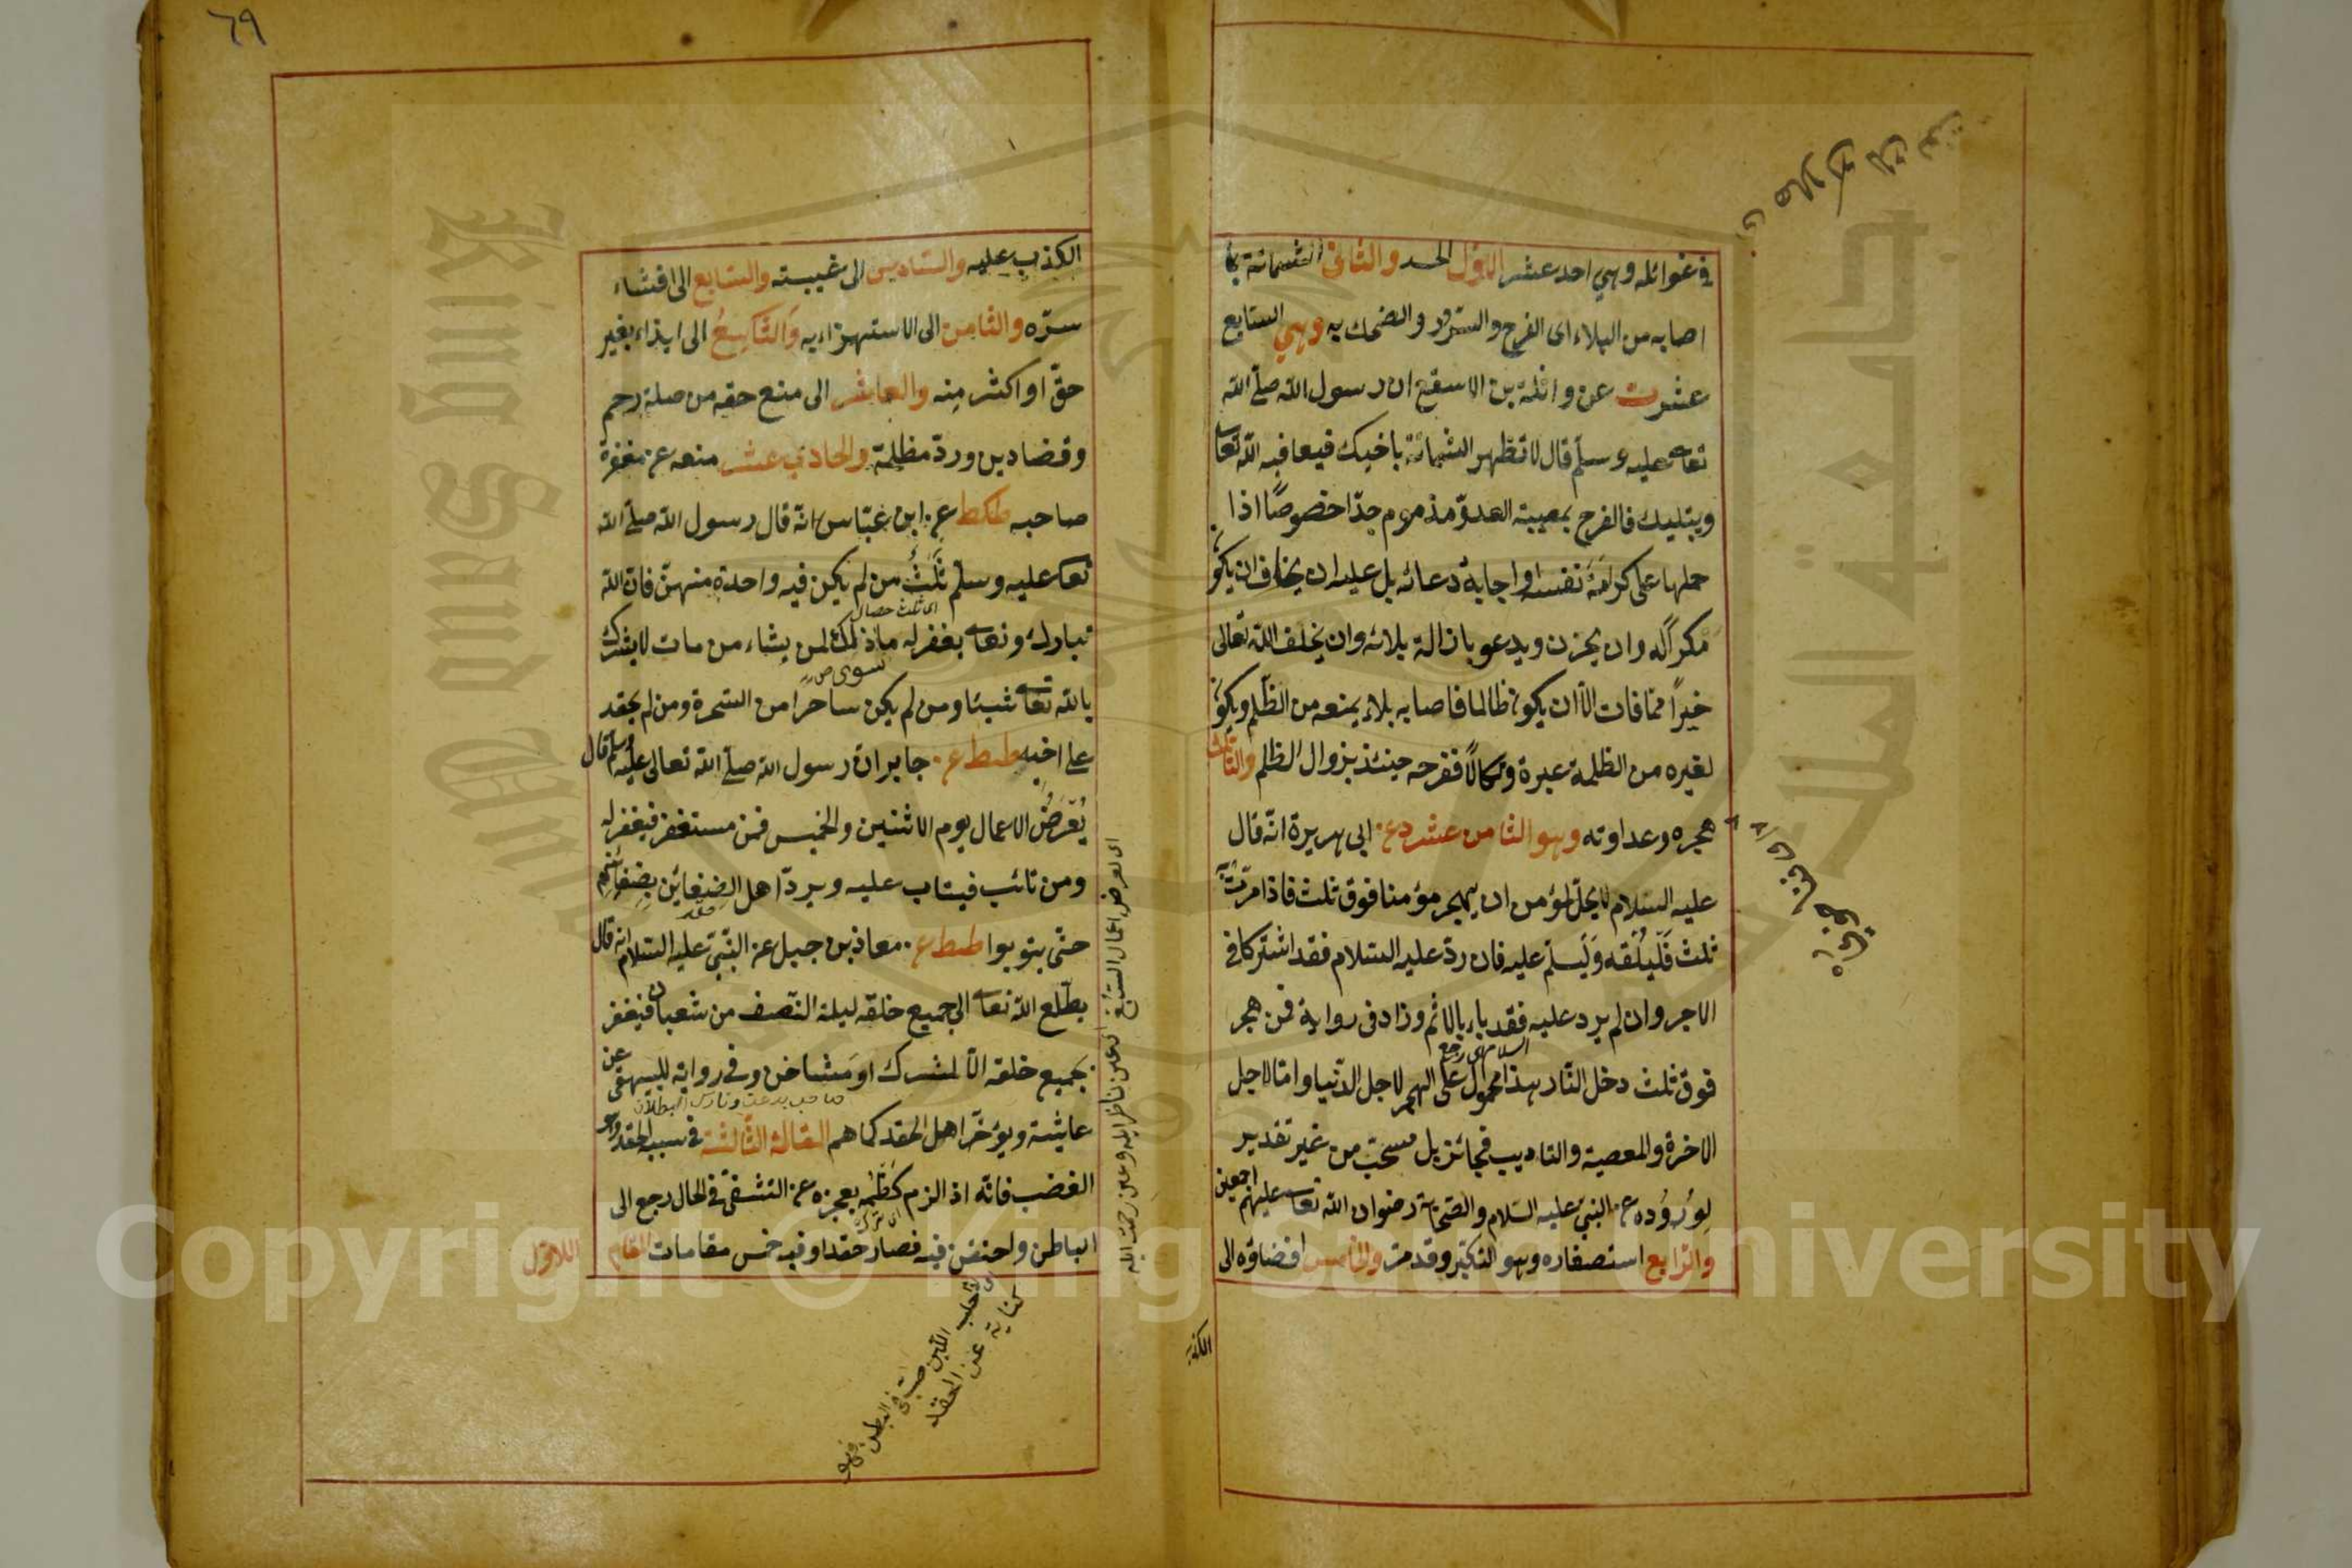 في غوائله وهي احد عشر الاول الحسد والثاني الشماتة بما
اصابه من البلاء اى الفرح والسرور والضحك به وهي السابع
عشرت عن واثلة بن الاسقع ان رسول الله صلى الله
تعا عليه وسلم قال لا تظهر الشماتة باخيك فيعافيه الله تعا
ويبتليك فالفرح بمصيبة العدوّ مذموم جدّا خصوصًا اذا
حملها على كرامة نفسه او اجابة دعائه بل عليه ان يخاف ان يكون
مكرًا له وان يحزن ويدعو بازالة بلائه وان يخلف الله تعالى
خيرًا مما فات الّا ان يكون ظالما فاصابه بلاء يمنعه من الظّلم ويكون
لغيره من الظلمة عبرة ونكالًا ففرحه حينئذ بزوال الظلم والثالث
هجره وعداوته وهو الثامن عشر دع. ابي هريرة انّه قال
عليه السّلام لا يحلّ لمؤمن ان يهجر مؤمنا فوق ثلث فاذا مرّت به
ثلث فَلْيَلْقَه وَلْيُسلّم عليه فان ردّ عليه السّلام فقد اشتركا في
الاجر وان لم يرد عليه فقد باء بالاثم وزاد في رواية فمن هجر
فوق ثلث دخل النّار هذا محمول على الهجر لاجل الدّنيا وامّا لاجل
الاخرة والمعصية والتاديب فجائز بل مستحبّ من غير تقدير
لِوُرُوده عن النبيّ عليه السّلام والصّحابة رضوان الله تعا عليهم اجمعين
والرّابع استصغاره وهو التكبّر وقد مرّ والخامس افضاؤه الى
الكذب
٦٩
الكذب عليه والسّادس الى غيبته والسّابع الى افشاء
سرّه والثّامن الى الاستهزاء به وَالتَّاسِعُ الى ايذاءه بغير
حقّ او اكثر مِنه والعاشر الى منع حقه من صلة رحم
وقضاء دين وردّ مظلمة والحادي عشر منعه عن مغفرة
صاحبه طكطط عن ابن عبّاس انّه قال رسول الله صلى الله
تعا عليه وسلّم ثَلَثٌ من لم يكن فيه واحدة منهنّ فانّ الله
اى ثلث خصال
تبارك وتعا يغفر له ما ذلك لمن يشاء من مات لا يشرك
سوى
بالله تعا شيئا ومن لم يكن ساحرا من السّحرة ومن لم يحقد
على اخيه طط عن جابر انّ رسول الله صلى الله تعالى عليه وسلّم قال
يُعْرَضُ الاعمال يوم الاثنين والخميس فمن مستغفر فيغفر له
ومن تائب فيتاب عليه ويردّ اهل الضغائن بضغائنهم
حتّى يتوبوا طط عن معاذ بن جبل عن النّبيّ عليه السّلام انه قال
يطّلع الله تعا الى جميع خلقه ليلة النّصف من شعبان فيغفر
لجميع خلقه الّا لمشرك او مشاحن وفي رواية للبيهقى عن
عايشة ويؤخّر اهل الحقد كما هم المقالة الثّالثة في سبب الحقد وهو
الغضب فانّه اذا لزم كَظْمُه بعجزه عن التشفّى في الحال رجع الى
الباطن واحتقن فيه فصار حقدا وفيه خمس مقامات المقام الاوّل
كناية عن الحقد